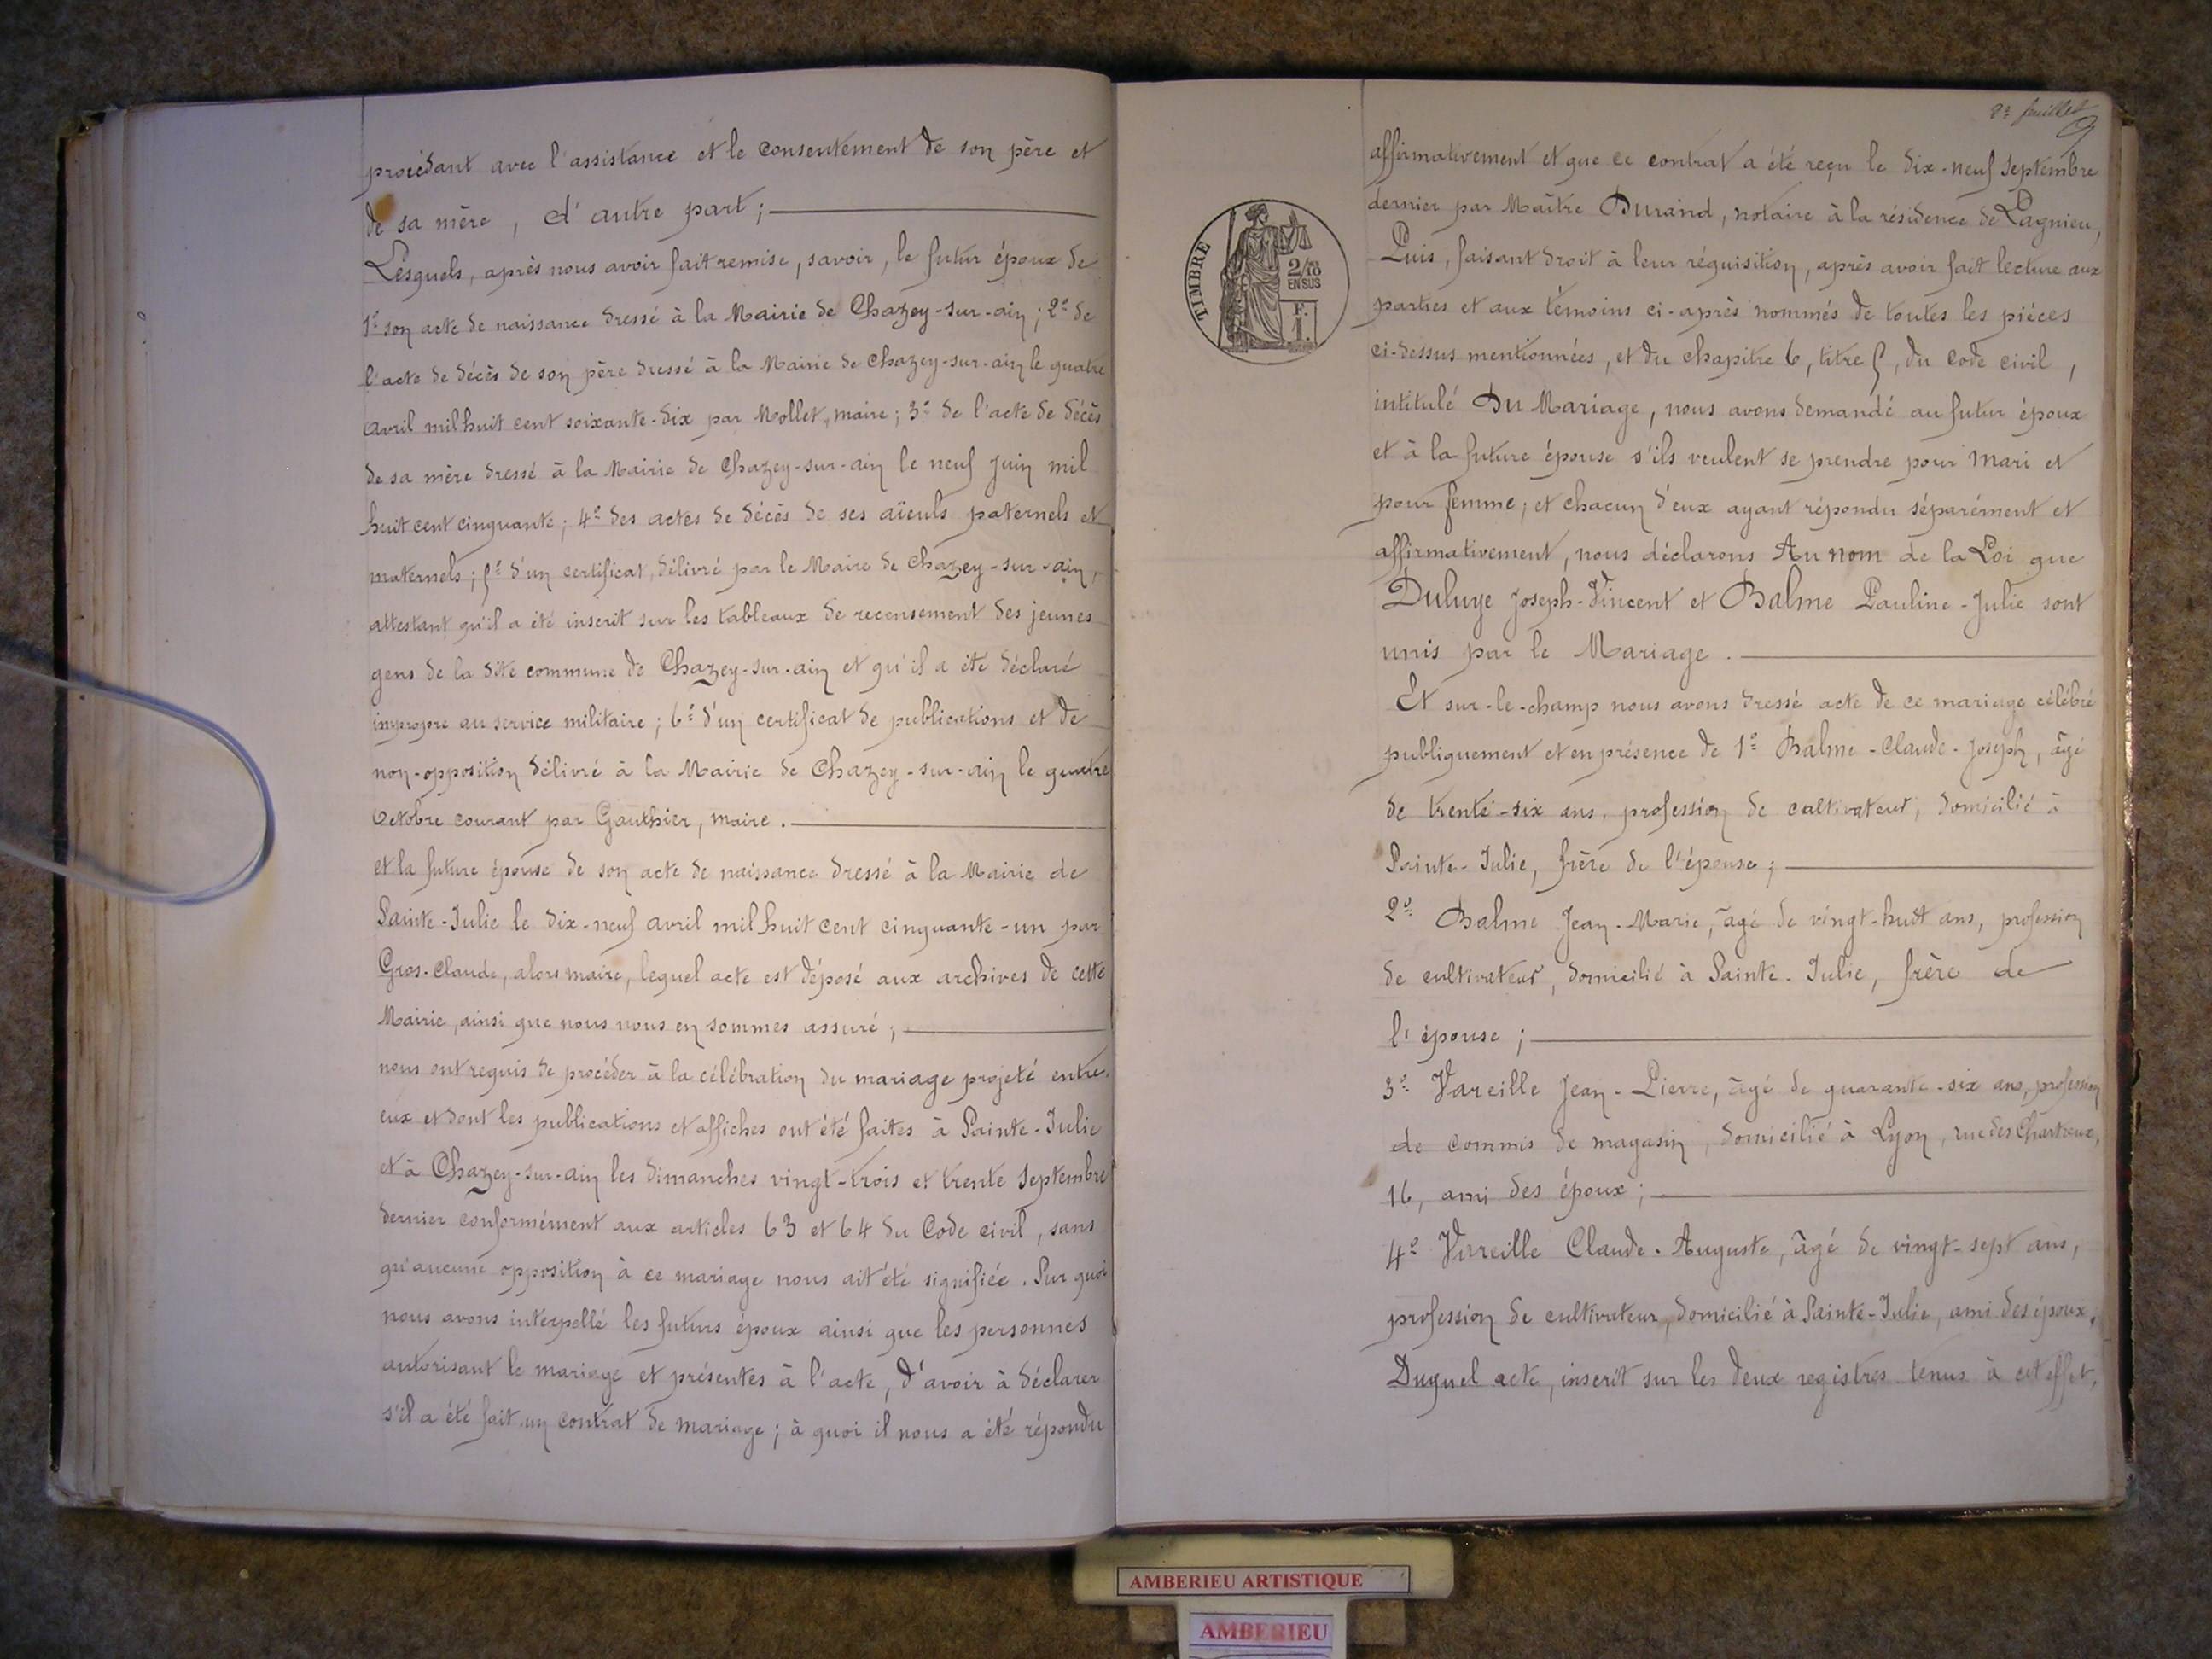 procédant avec l'assistance et le consentement de son père et
de sa mère, d'autre part;
Lesquels, après nous avoir fait remise, savoir, le futur époux de
1º son acte de naissance dressé à la Mairie de Chazey-sur-ain; 2º de
l'acte de décès de son père dressé à la Mairie de Chazey-sur-ain le quatre
avril mil huit cent soixante-dix par Mollet, maire; 3º de l'acte de décès
de sa mère dressé à la Mairie de Chazey-sur-ain le neuf Juin mil
huit cent cinquante; 4º des actes de décès de ses aïeuls paternels et
maternels; 5º d'un certificat, délivré par le Maire de Chazey-sur-ain,
attestant qu'il a été inscrit sur les tableaux de recensement des jeunes
gens de la dite commune de Chazey-sur-ain et qu'il a été déclaré
impropre au service militaire; 6º d'un certificat de publications et de
non-opposition délivré à la Mairie de Chazey-sur-ain le quatre
Octobre courant par Gauthier, maire.
et la future épouse de son acte de naissance dressé à la Mairie de
Sainte-Julie le dix-neuf avril mil huit cent cinquante-un par
Gros-Claude, alors maire, lequel acte est déposé aux archives de cette
Mairie, ainsi que nous nous en sommes assuré;
nous ont requis de procéder à la célébration du mariage projeté entre
eux et dont les publications et affiches ont été faites à Sainte-Julie
et à Chazey-sur-ain les dimanches vingt-trois et trente Septembre
dernier conformément aux articles 63 et 64 du Code civil, sans
qu'aucune opposition à ce mariage nous ait été signifiée. Sur quoi
nous avons interpellé les futurs époux ainsi que les personnes
autorisant le mariage et présentes à l'acte, d'avoir à déclarer
s'il a été fait un contrat de mariage; à quoi il nous a été répondu
feuillet
TIMBRE
2/10
EN SUS
F.
1.
affirmativement et que ce contrat a été reçu le dix-neuf Septembre
dernier par Maître Durand, notaire à la résidence de Lagnieu,
Puis, faisant droit à leur réquisition, après avoir fait lecture aux
parties et aux témoins ci-après nommés de toutes les pièces
ci-dessus mentionnées, et du chapitre 6, titre 5, du Code civil,
intitulé Du Mariage, nous avons demandé au futur époux
et à la future épouse s'ils veulent se prendre pour Mari et
pour femme; et chacun d'eux ayant répondu séparément et
affirmativement, nous déclarons Au nom de la Loi que
Duluye Joseph-Vincent et Balme Pauline-Julie sont
unis par le Mariage.
Et sur-le-champ nous avons dressé acte de ce mariage célébré
publiquement et en présence de 1º Balme-Claude-Joseph, âgé
de trente-six ans, profession de cultivateur, domicilié à
Sainte-Julie, frère de l'épouse;
2º Balme Jean-Marie, âgé de vingt-huit ans, profession
de cultivateur, domicilié à Sainte-Julie, frère de
l'épouse;
3º Vareille Jean-Pierre, âgé de quarante-six ans, profession
de commis de magasin, domicilié à Lyon, rue des Chartreux,
16, ami des époux;
4º Vareille Claude-Auguste, âgé de vingt-sept ans,
profession de cultivateur, domicilié à Sainte-Julie, ami des époux.
Duquel acte, inscrit sur les deux registres tenus à cet effet,
AMBERIEU ARTISTIQUE
AMBERIEU